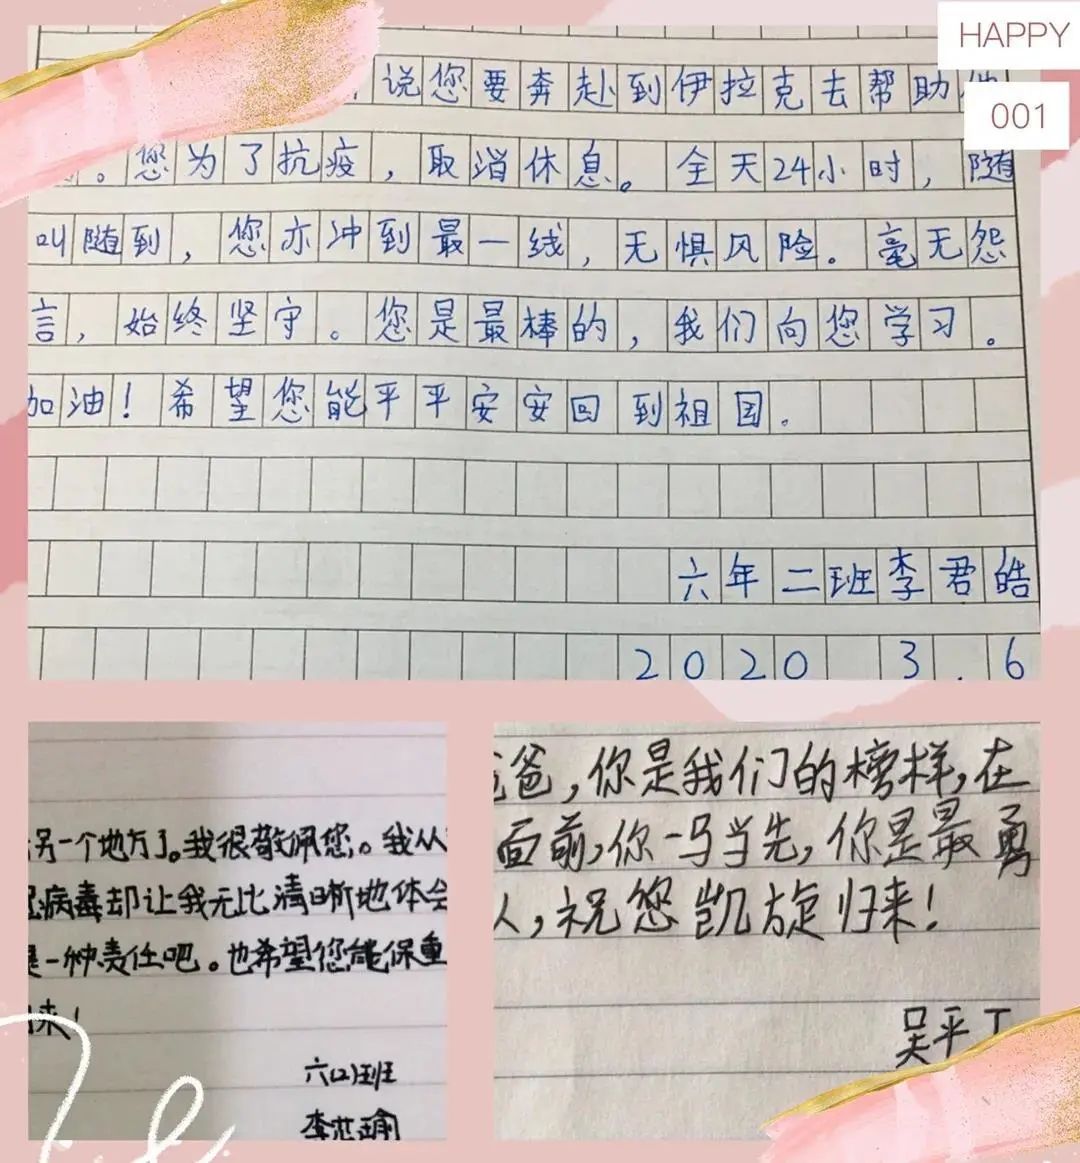 HAPPY
001
说您要奔赴到伊拉克去帮助
。您为了抗疫，取消休息。全天24小时，随
叫随到，您亦冲到最一线，无惧风险。毫无怨
言，始终坚守。您是最棒的，我们向您学习。
加油！希望您能平平安安回到祖国。
六年二班李君皓
2020 3.6
另一个地方了。我很敬佩您。我从
病毒却让我无比清晰地体会
是一种责任吧。也希望您能保重
来！
六(2)班
李芯瑜
爸，你是我们的榜样，在
面前，你一马当先，你是最勇
人，祝您凯旋归来！
吴平